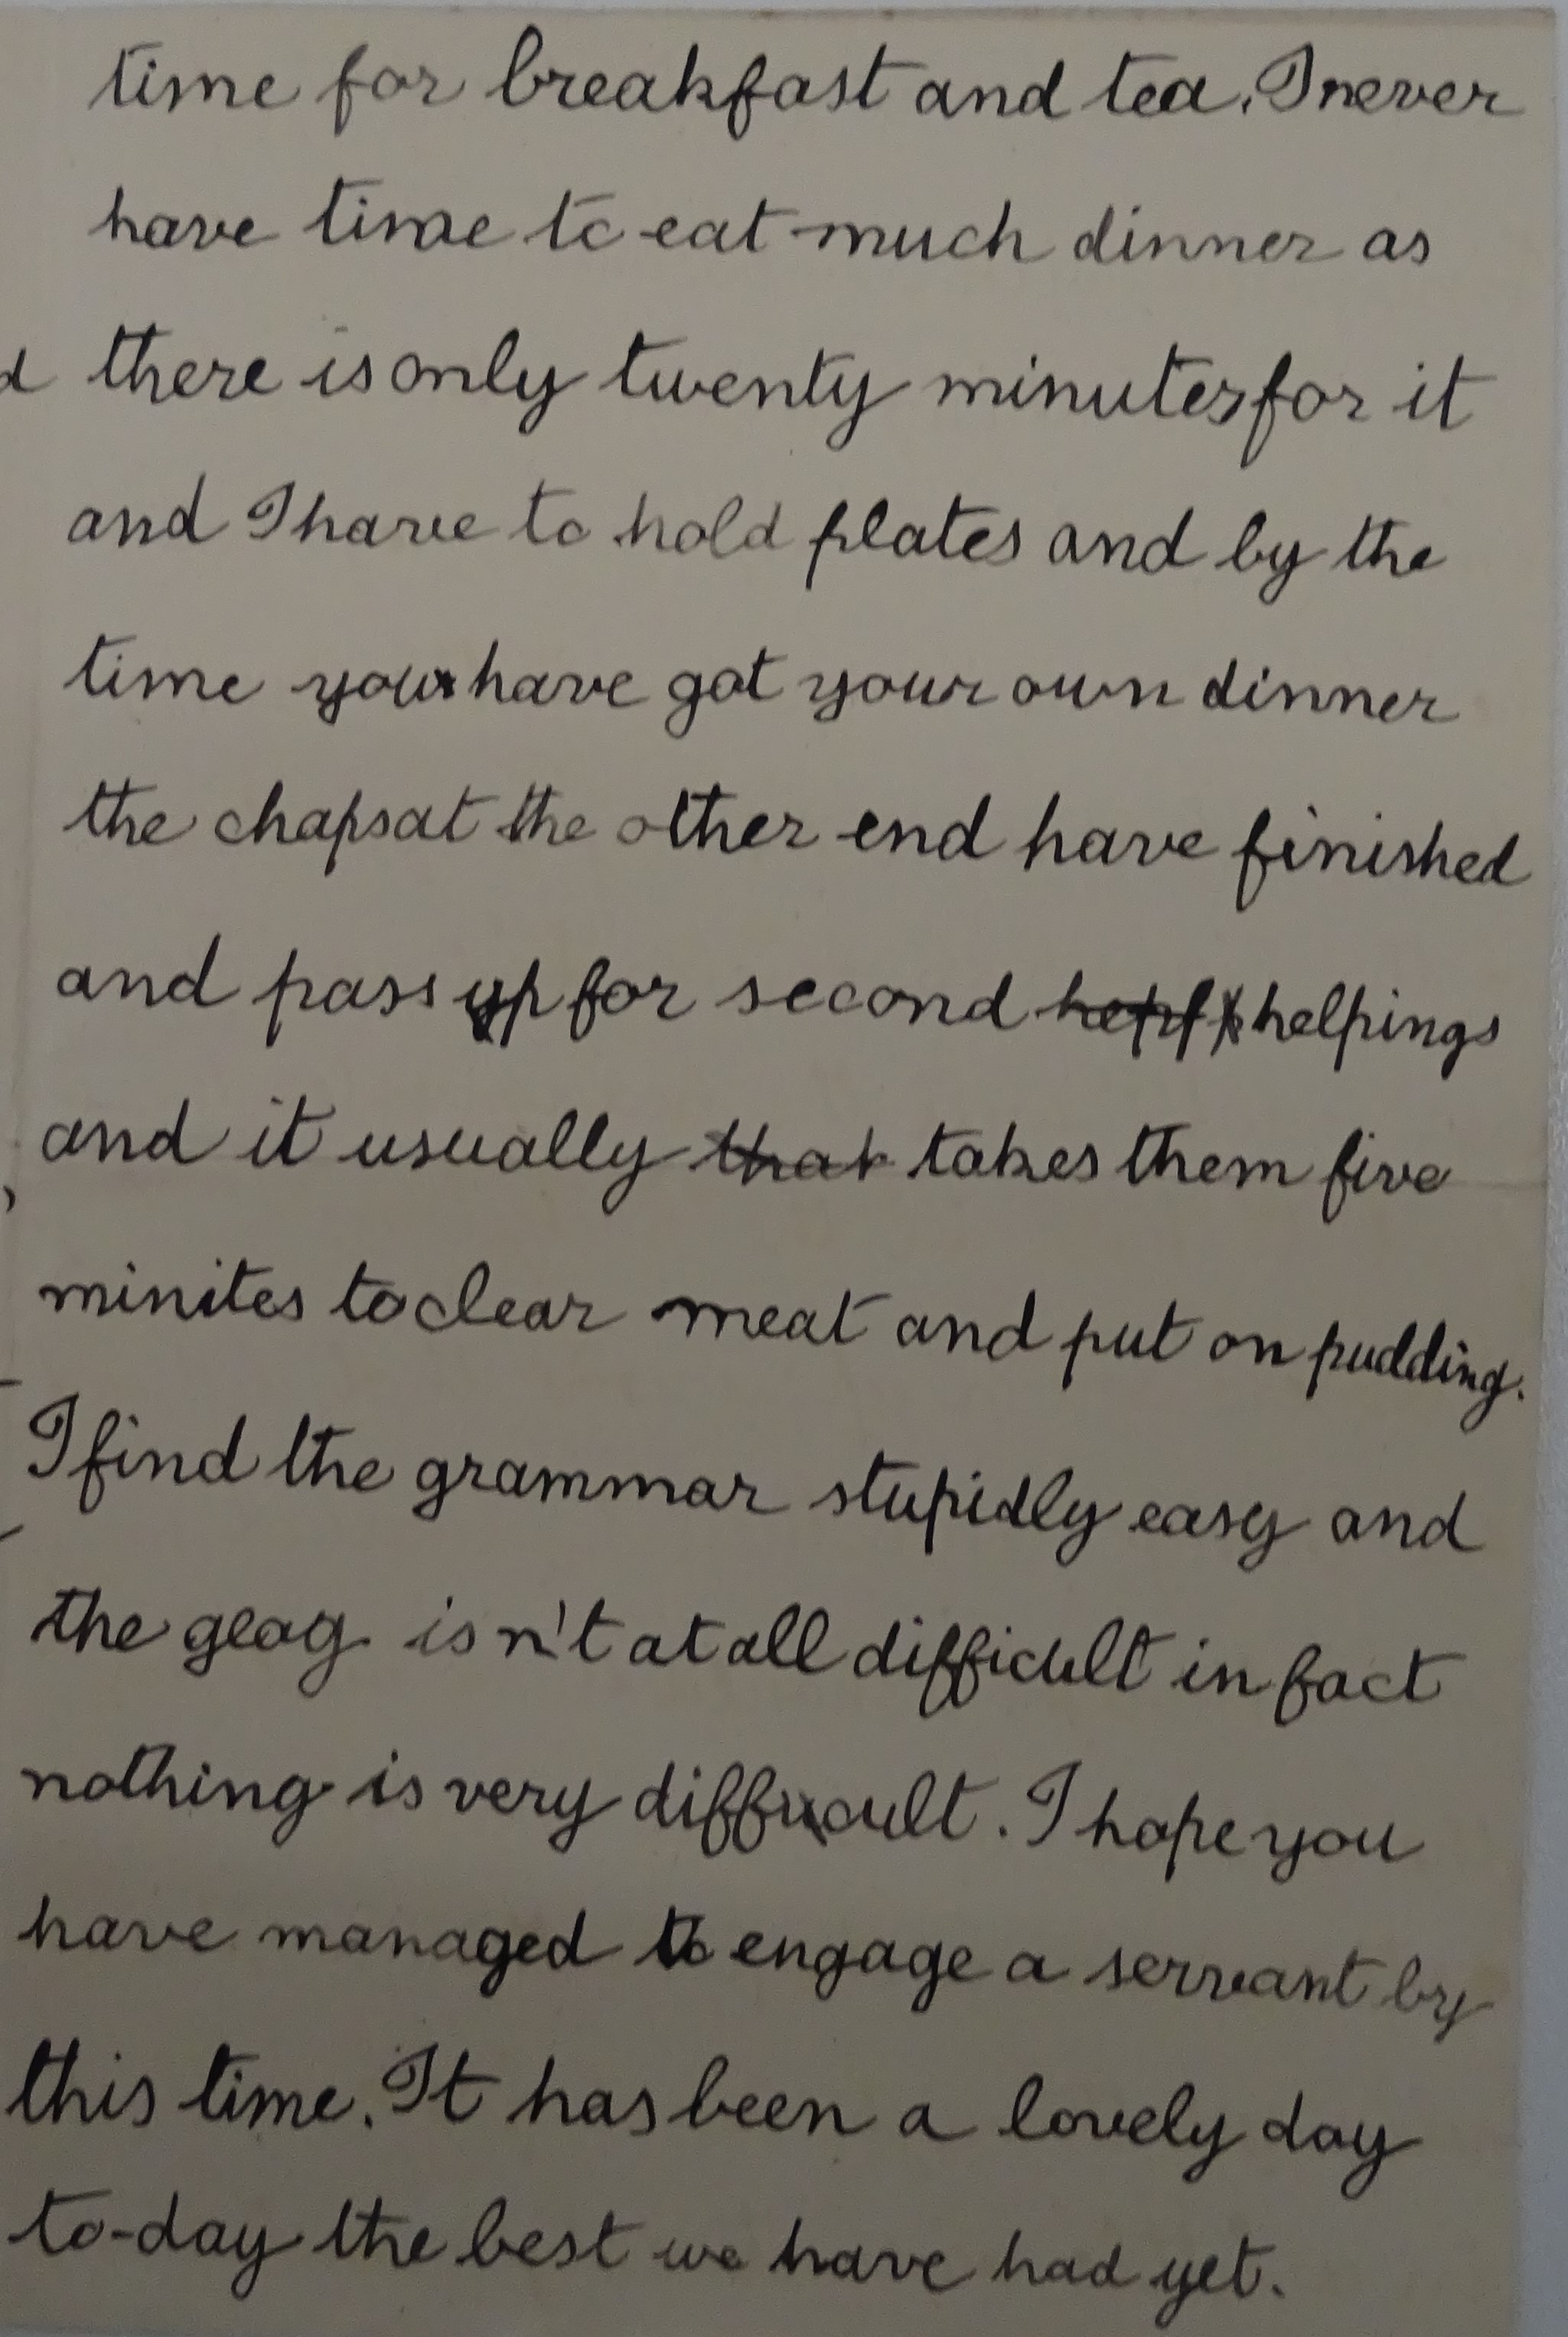 time for breakfast and tea. I never
have time to eat much dinner as
there is only twenty minutes for it
and I have to hold plates and by the
time you have got your own dinner
the chaps at the other end have finished
and pass up for second helpings
and it usually that takes them five
minites to clear meat and put on pudding.
I find the grammar stupidly easy and
the geog isn't at all difficult in fact
nothing is very difficult. I hope you
have managed to engage a servant by
this time. It has been a lovely day
to-day the best we have had yet.